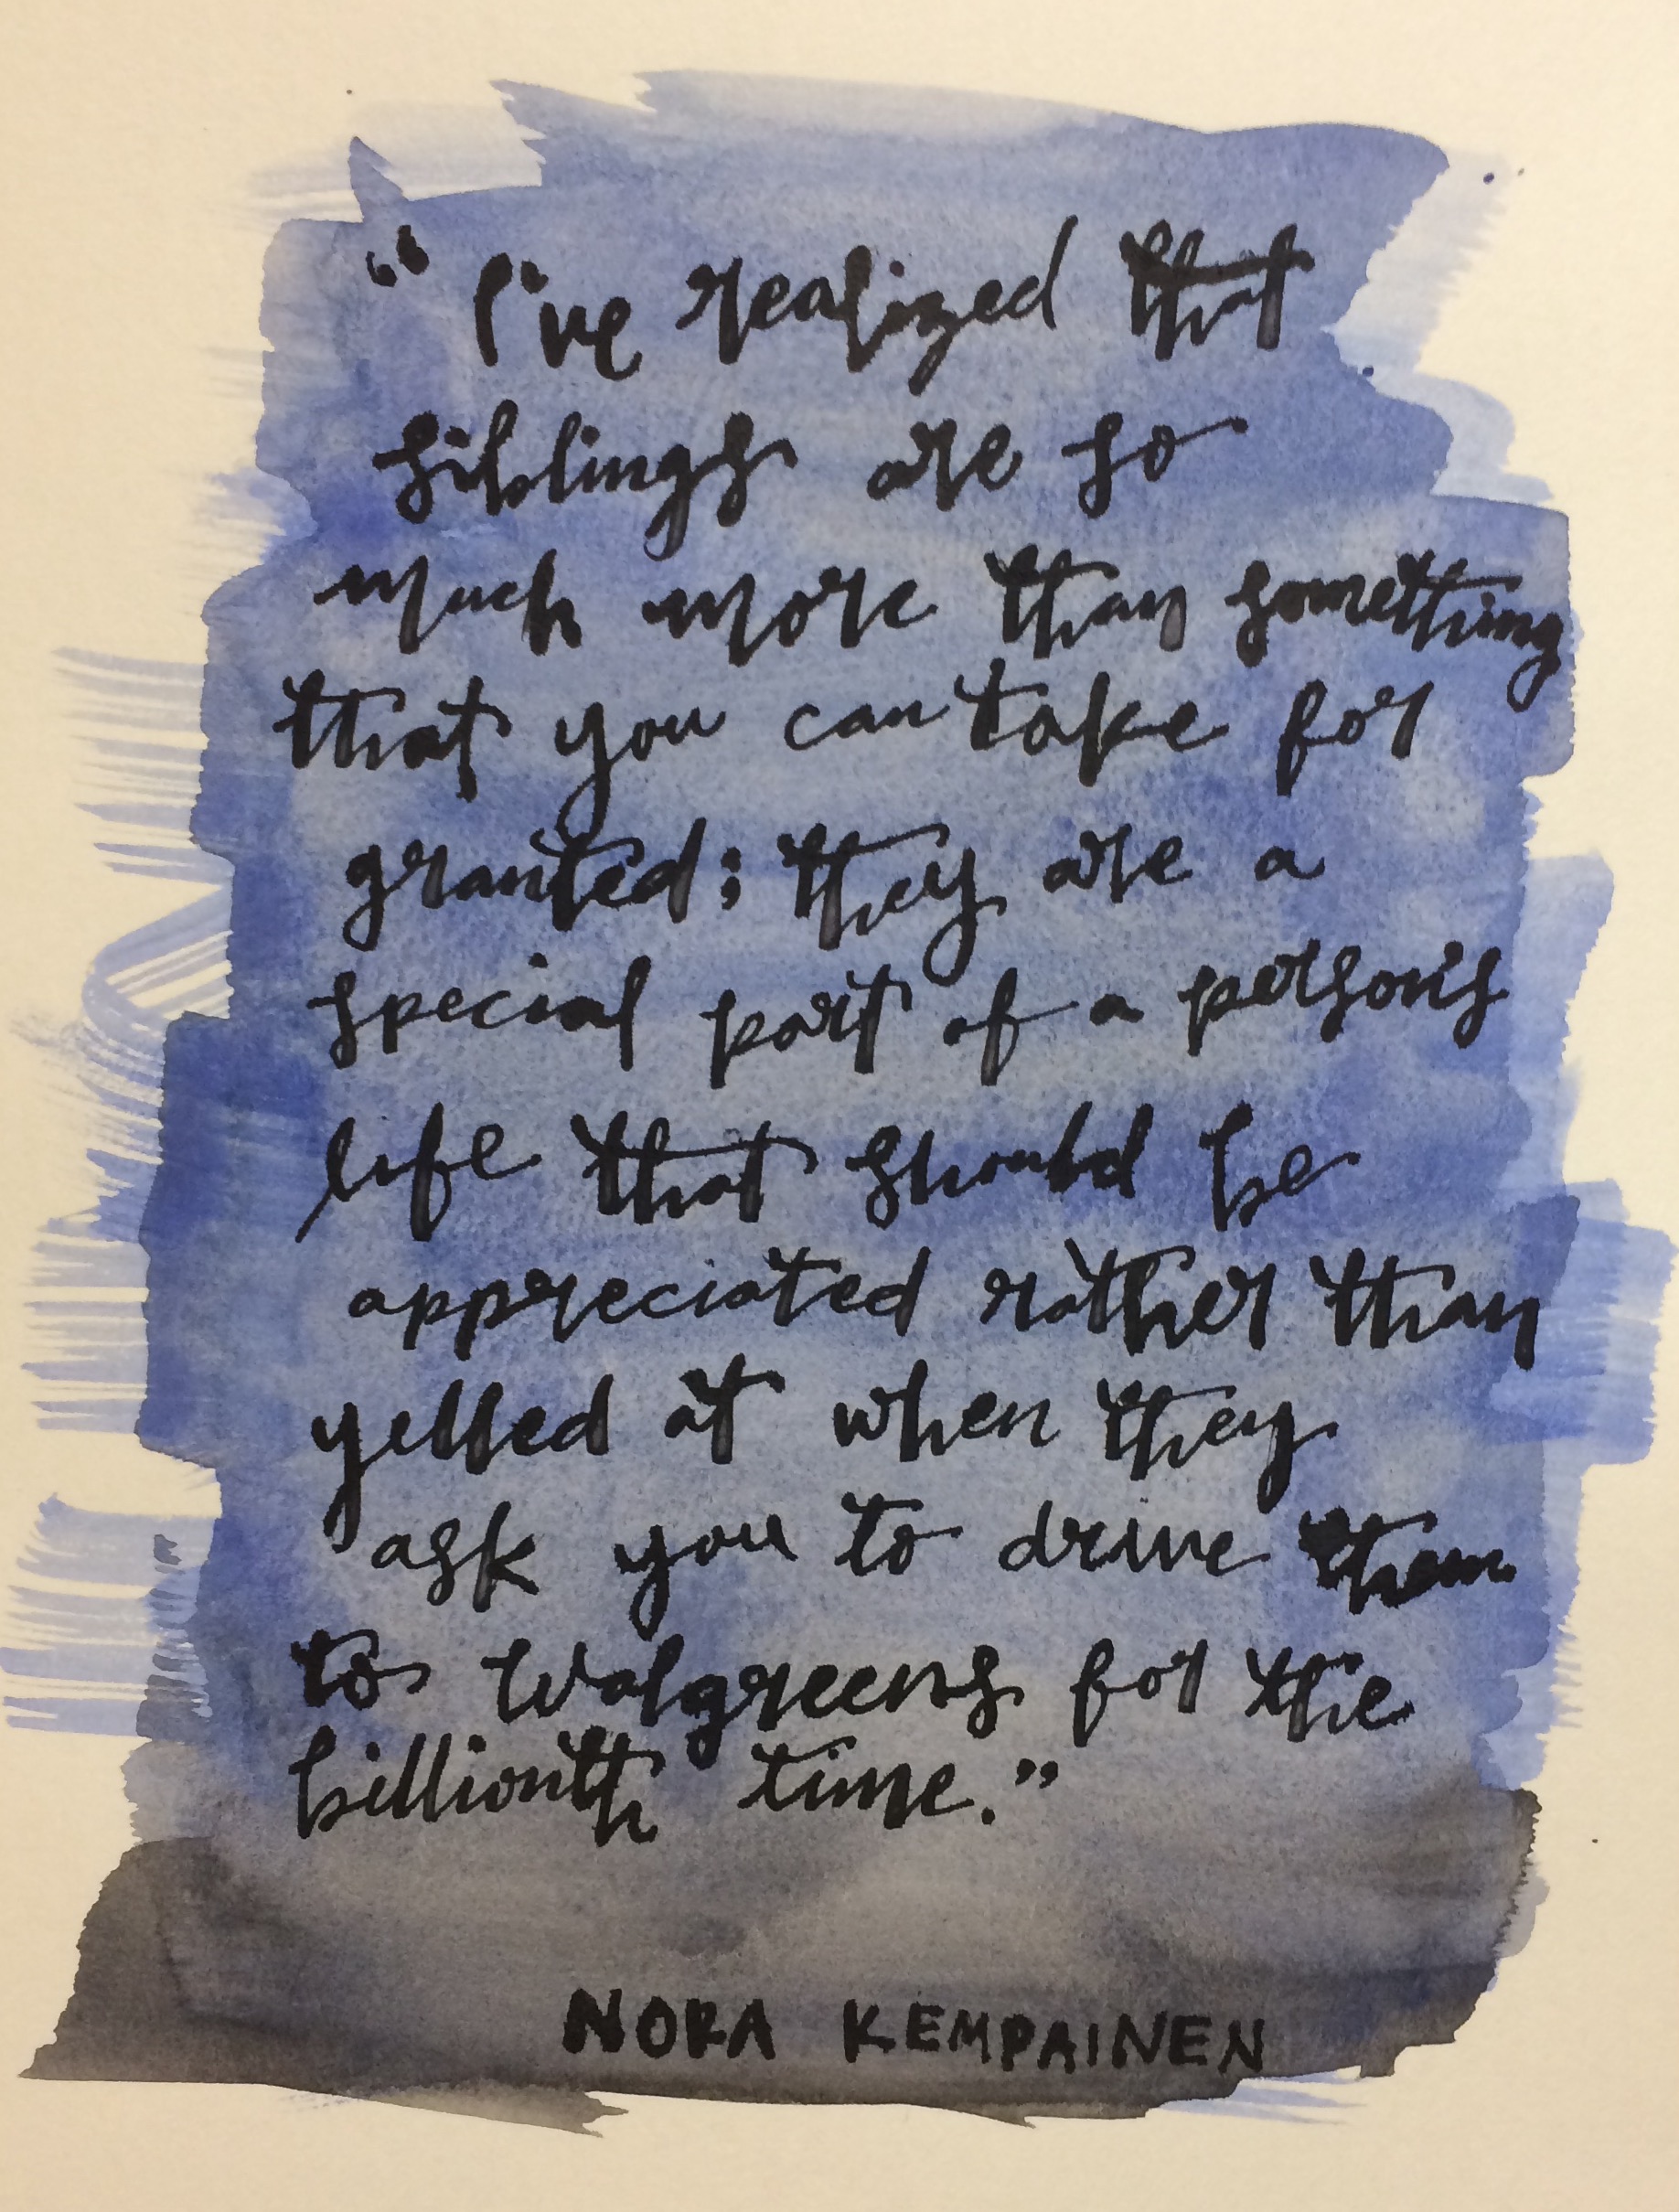 “I've realized that
siblings are so
much more than something
that you can take for
granted; they are a
special part of a person's
life that should be
appreciated rather than
yelled at when they
ask you to drive them
to Walgreens for the
billionth time.”
NORA KEMPAINEN